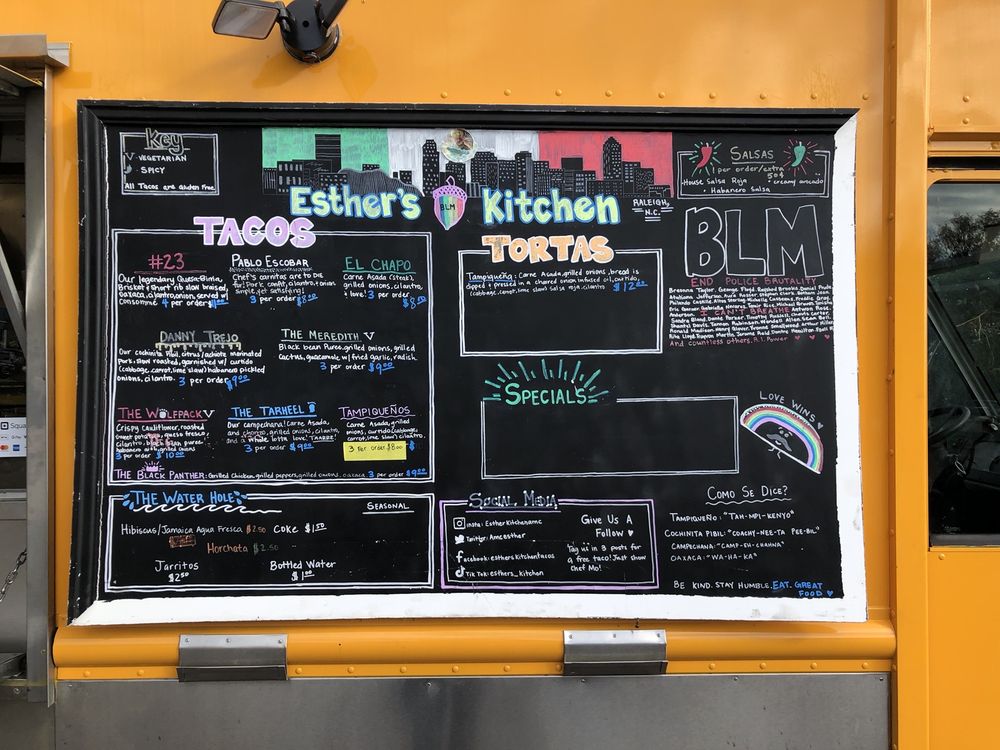 Key
V VEGETARIAN
SPICY
All Tacos are Gluten Free
Esther's Kitchen
BLM
RALEIGH, N.C.
SALSAS
1 per order/extra 50¢
House Salsa Roja • creamy avocado
• Habanero Salsa
TACOS
#23
Our legendary Quesa-Birria,
Brisket & short rib slow braised,
oaxaca, cilantro, onion, served w/
consommé 4 per order
PABLO ESCOBAR
Chef's carnitas are to DIE
for! Pork confit, cilantro, onion
simple, yet satisfying!
3 per order $8.00
EL CHAPO
Carne Asada (steak),
grilled onions, cilantro,
& love! 3 per order
DANNY TREJO
Our cochinita Pibil, citrus/achiote marinated
pork, slow roasted, garnished w/ curtido
(cabbage, carrot, lime slaw) habanero pickled
onions, cilantro. 3 per order $9.00
THE MEREDITH V
Black bean Puree, grilled onions, grilled
Cactus, guacamole, w/ fried garlic, radish
3 per order $9.00
THE WOLFPACK V
Crispy cauliflower, roasted
sweet potato, queso fresco,
cilantro, black bean puree,
habanero with grilled onions
3 per order $10.00
THE TARHEEL
Our campechana! Carne Asada,
and chorizo, grilled onions, cilantro,
and a whole lotta love!
3 per order $9.00
TAMPIQUEÑOS
Carne Asada, grilled
onions, curtido (cabbage,
carrot, lime slaw) cilantro.
3 per order $8.00
THE BLACK PANTHER: Grilled Chicken, grilled peppers, grilled onions, oaxaca 3 per order $9.00
TORTAS
Tampiqueña: Carne Asada, grilled onions, bread is
dipped & pressed in a charred onion infused oil, curtido,
(cabbage, carrot, lime slaw) salsa roja, cilantro $12.00
SPECIALS
BLM
END POLICE BRUTALITY
Breonna Taylor, George Floyd, Rayshard Brooks, Daniel Prude,
Atatiana Jefferson, Aura Rosser, Stephon Clark, Botham Jean,
Philando Castile, Alton Sterling, Michelle Cusseaux, Freddie Gray,
Eric Garner, Gabriella Nevarez, Tamir Rice, Michael Brown,
I CAN'T BREATHE
Sandra Bland,
And countless others, R.I. Power
LOVE WINS
THE WATER HOLE
SEASONAL
Hibiscus/Jamaica Agua Fresca $2.50 COKE $1.50
Horchata $2.50
Jarritos $2.50
Bottled Water $1.00
SOCIAL MEDIA
Insta: EstherKitchennc
Twitter: @ncesther
Facebook: estherskitchentacos
TikTok: esthers_kitchen
Give Us A
Follow
Tag us in 3 posts for
a free taco! Just show
Chef Mo!
COMO SE DICE?
TAMPIQUEÑO: "TAH-MPI-KENYO"
COCHINITA PIBIL: "COACHY-NEE-TA PEE-BIL"
CAMPECHANA: "CAMP-EH-CHAHNA"
OAXACA: "WA-HA-KA"
BE KIND. STAY HUMBLE. EAT GREAT
FOOD
Square